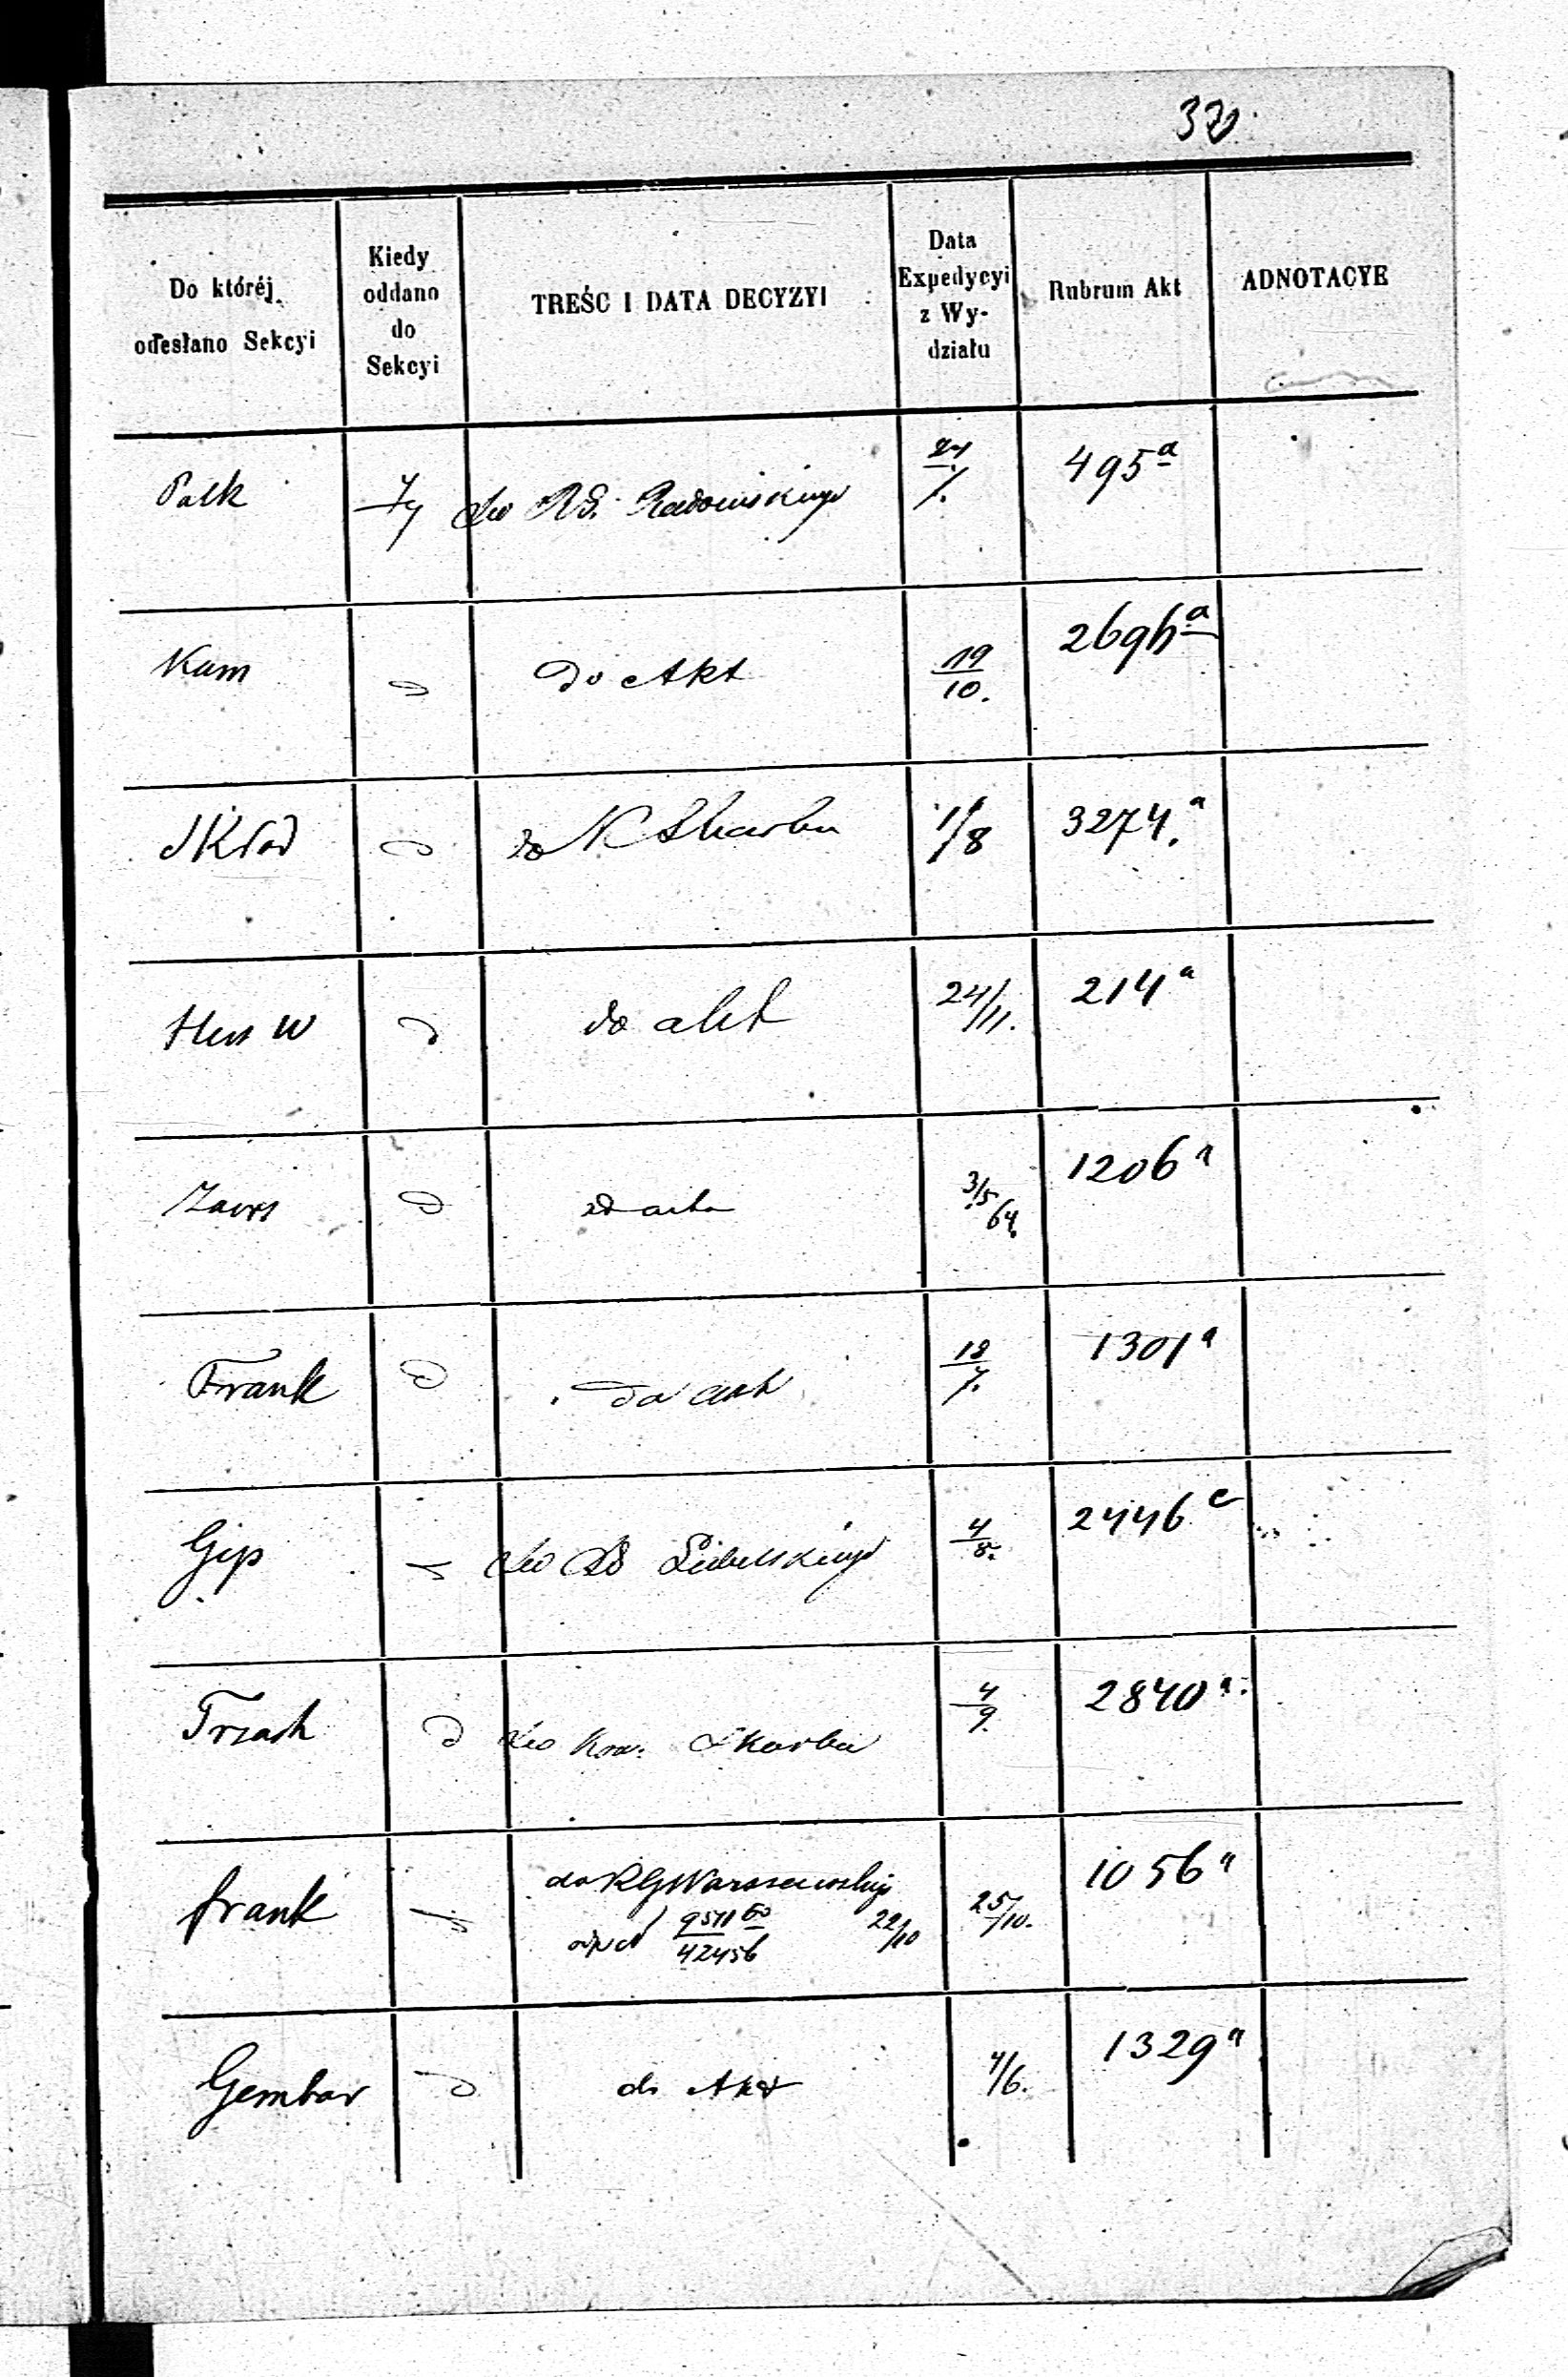 32
Do któréj odesłano Sekcyi
Kiedy oddano do Sekcyi
TREŚC I DATA DECYZYI
Data Expedycyi z Wydziału
Rubrum Akt
ADNOTACYE
Palk 7/4 do RG. Radomskiego 495a
Kam d do Akt 19/10. 2696a
Skład d do K Skarbu 1/8 3274.a
Hen W d do akt 24/11. 214a
Zawrs d ad acta 3/5 64. 1206a
Frank d do akt 18/7. 1301a
Gip do RG Lubelskiego 4/8. 2446c
Trzask d do Kom. Skarbu 4/9. 2840a.
frank do RG Warszawskiego 25/10. 1056a
42456 22/10
Gembar d do Akt 4/6. 1329a